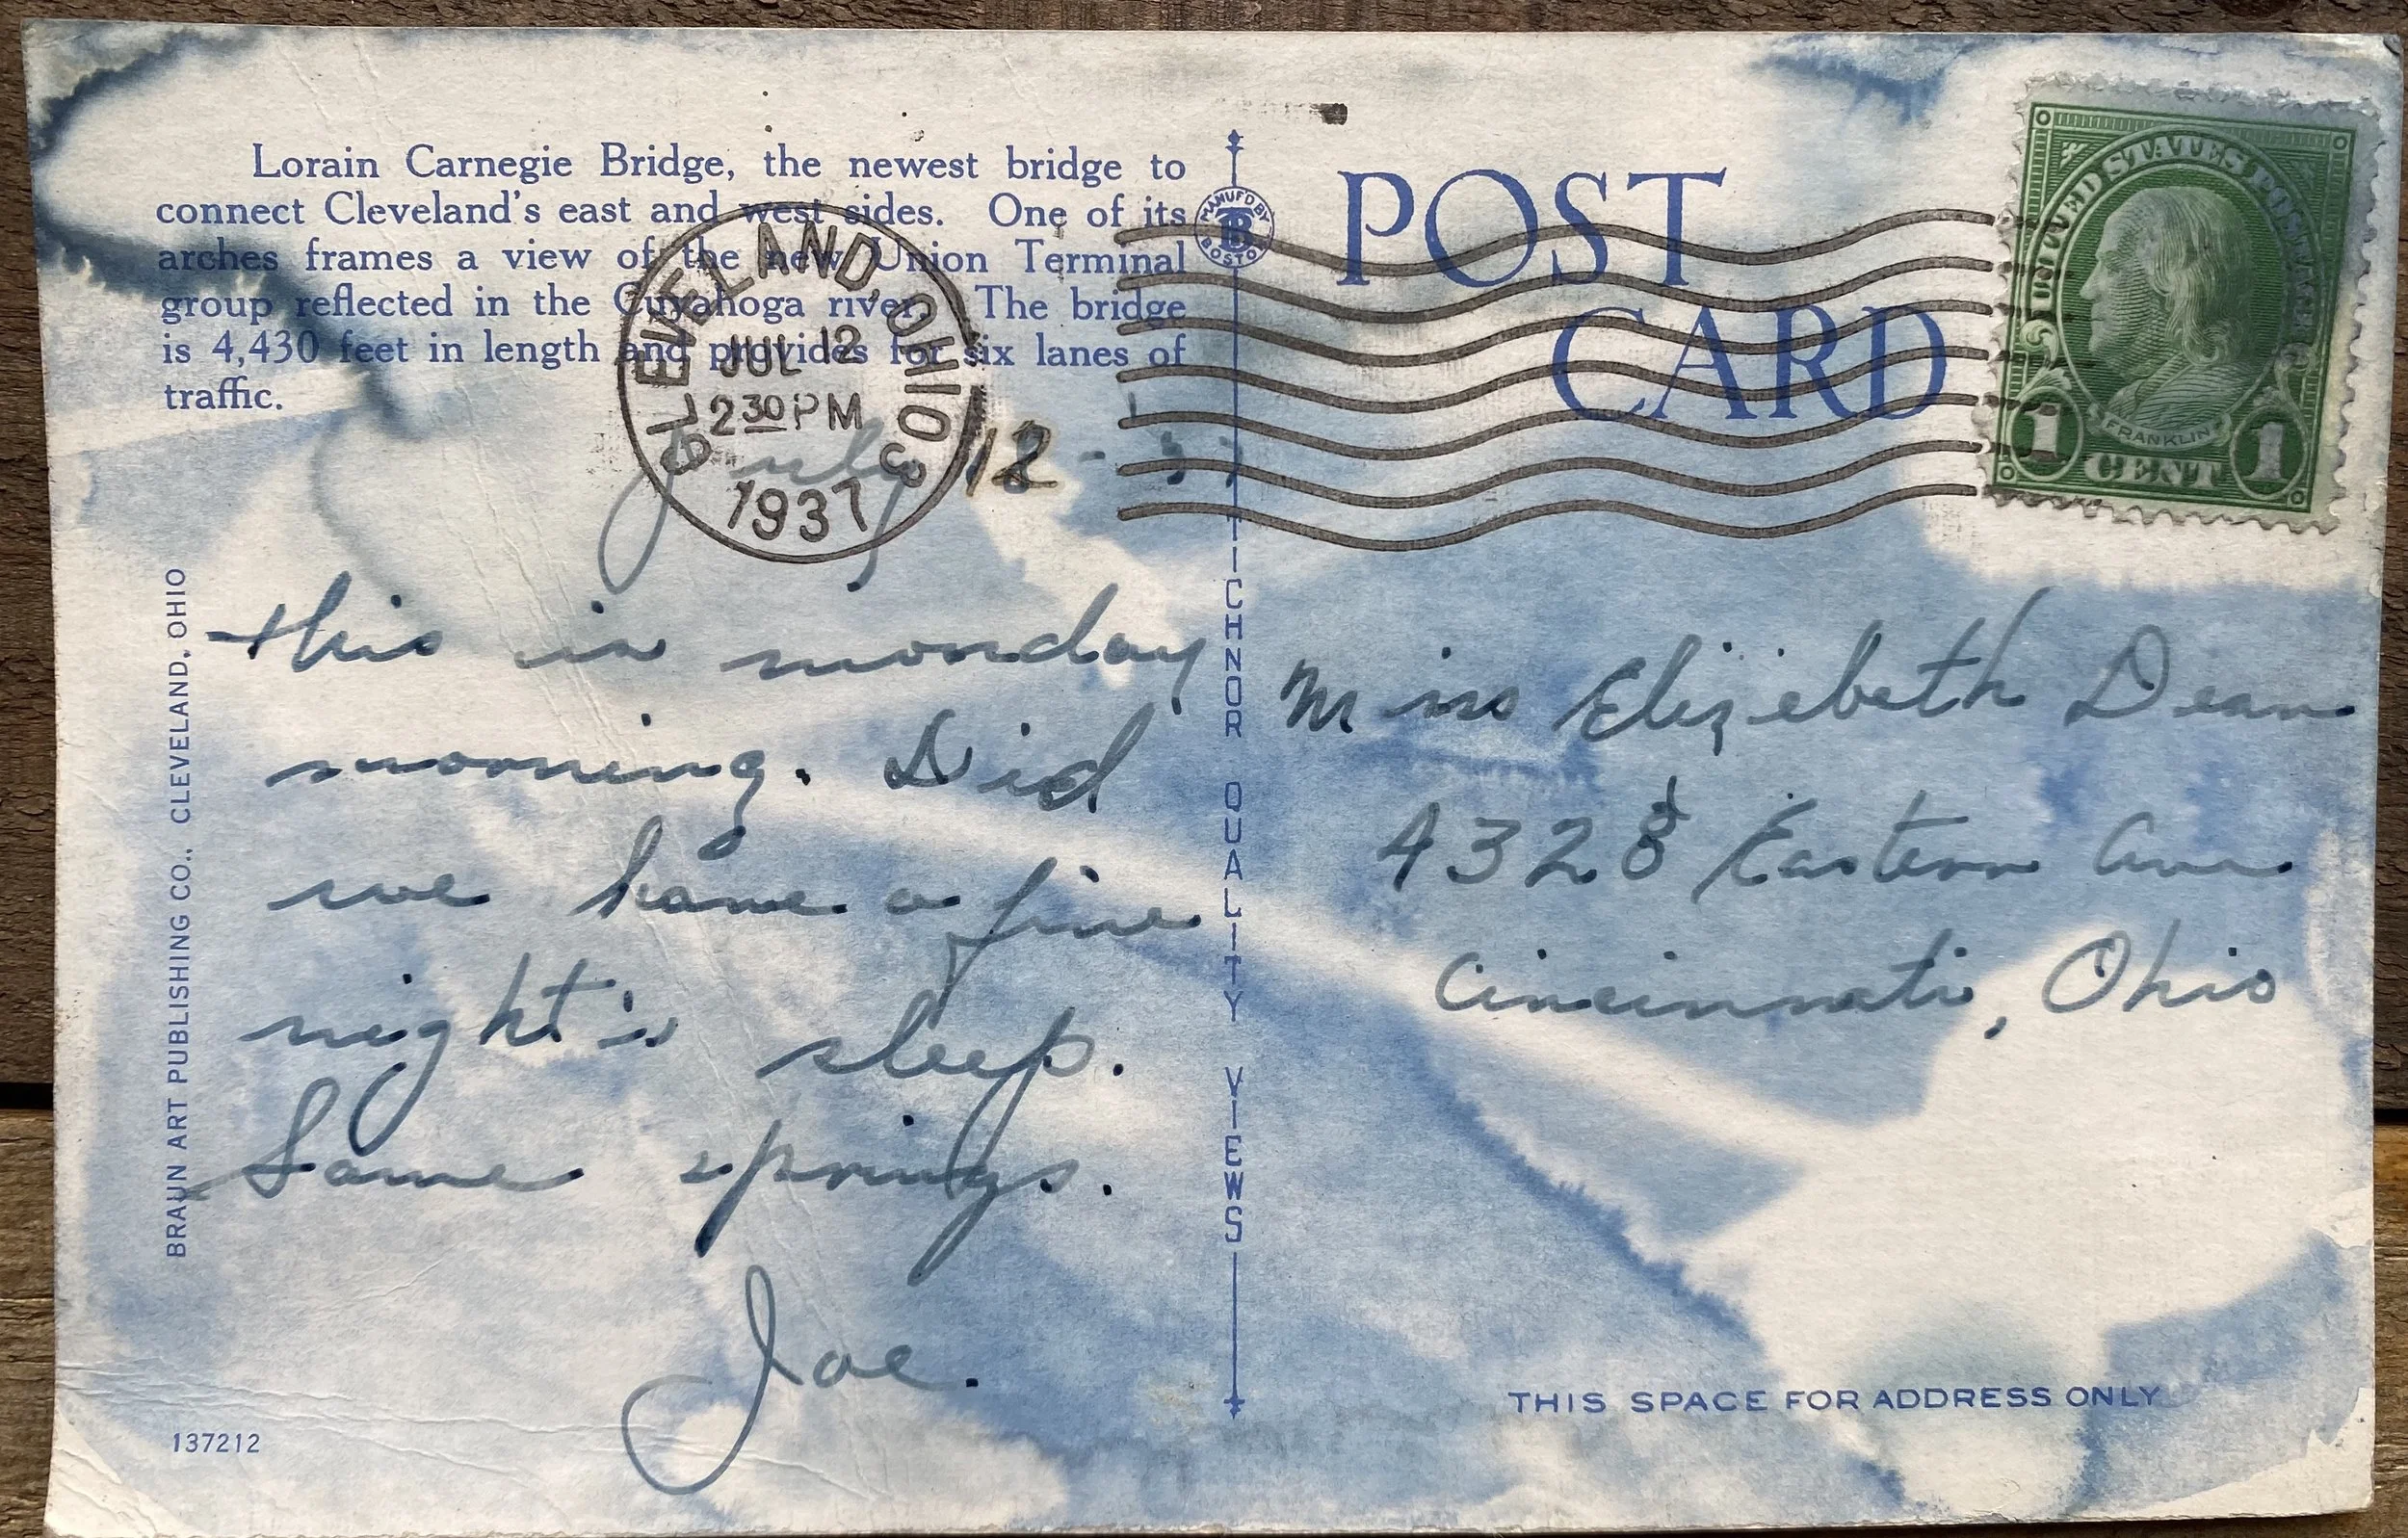 Lorain Carnegie Bridge, the newest bridge to
connect Cleveland's east and west sides. One of its
arches frames a view of the new Union Terminal
group reflected in the Cuyahoga river. The bridge
is 4,430 feet in length and provides for six lanes of
traffic.
CLEVELAND, OHIO 3
JUL 12
2 30 PM
1937
July 12 - 37
this is monday
morning. Did
we have a fine
night's sleep.
Some springs.
Joe.
BRAUN ART PUBLISHING CO., CLEVELAND, OHIO
137212
MANUF'D BY
TB
BOSTON
TICHNOR QUALITY VIEWS
POST
CARD
UNITED STATES POSTAGE
FRANKLIN
1 CENT 1
Miss Elizebeth Dean
4328 Eastern Ave
Cincinnati, Ohio
THIS SPACE FOR ADDRESS ONLY